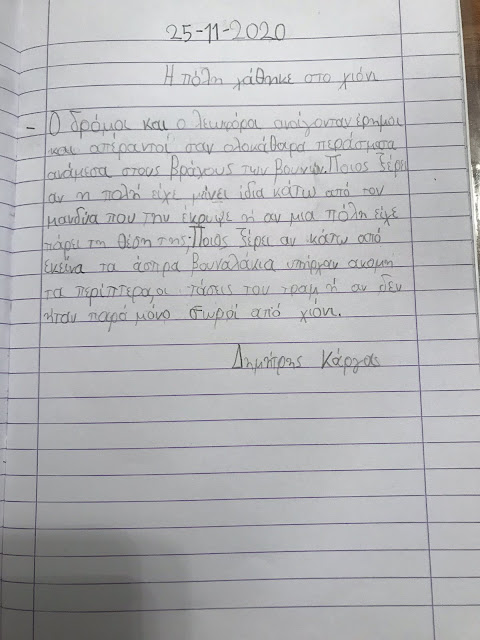 25-11-2020
Η πόλη χάθηκε στο χιόνι
- Ο δρόμοι και ο λεωφόροι ανοίγονταν έρημοι
και απέραντοι σαν ολοκάθαρα περάσματα
ανάμεσα στους βράχους των βουνών. Ποιος ξέρει
αν η πολή είχε μίνει ίδια κάτω από τον
μανδύα που την έκρυψε ή αν μια πόλη είχε
πάρει τη θέση της. Ποιός ξέρει αν κάτω από
εκείνα τα άσπρα βουναλάκια υπήρχαν ακομη
τα περίπτερα, οι τάσεις του τραμ ή αν δεν
ήταν παρά μόνο σωροί από χιόνι.
Δημήτρης Κάργας